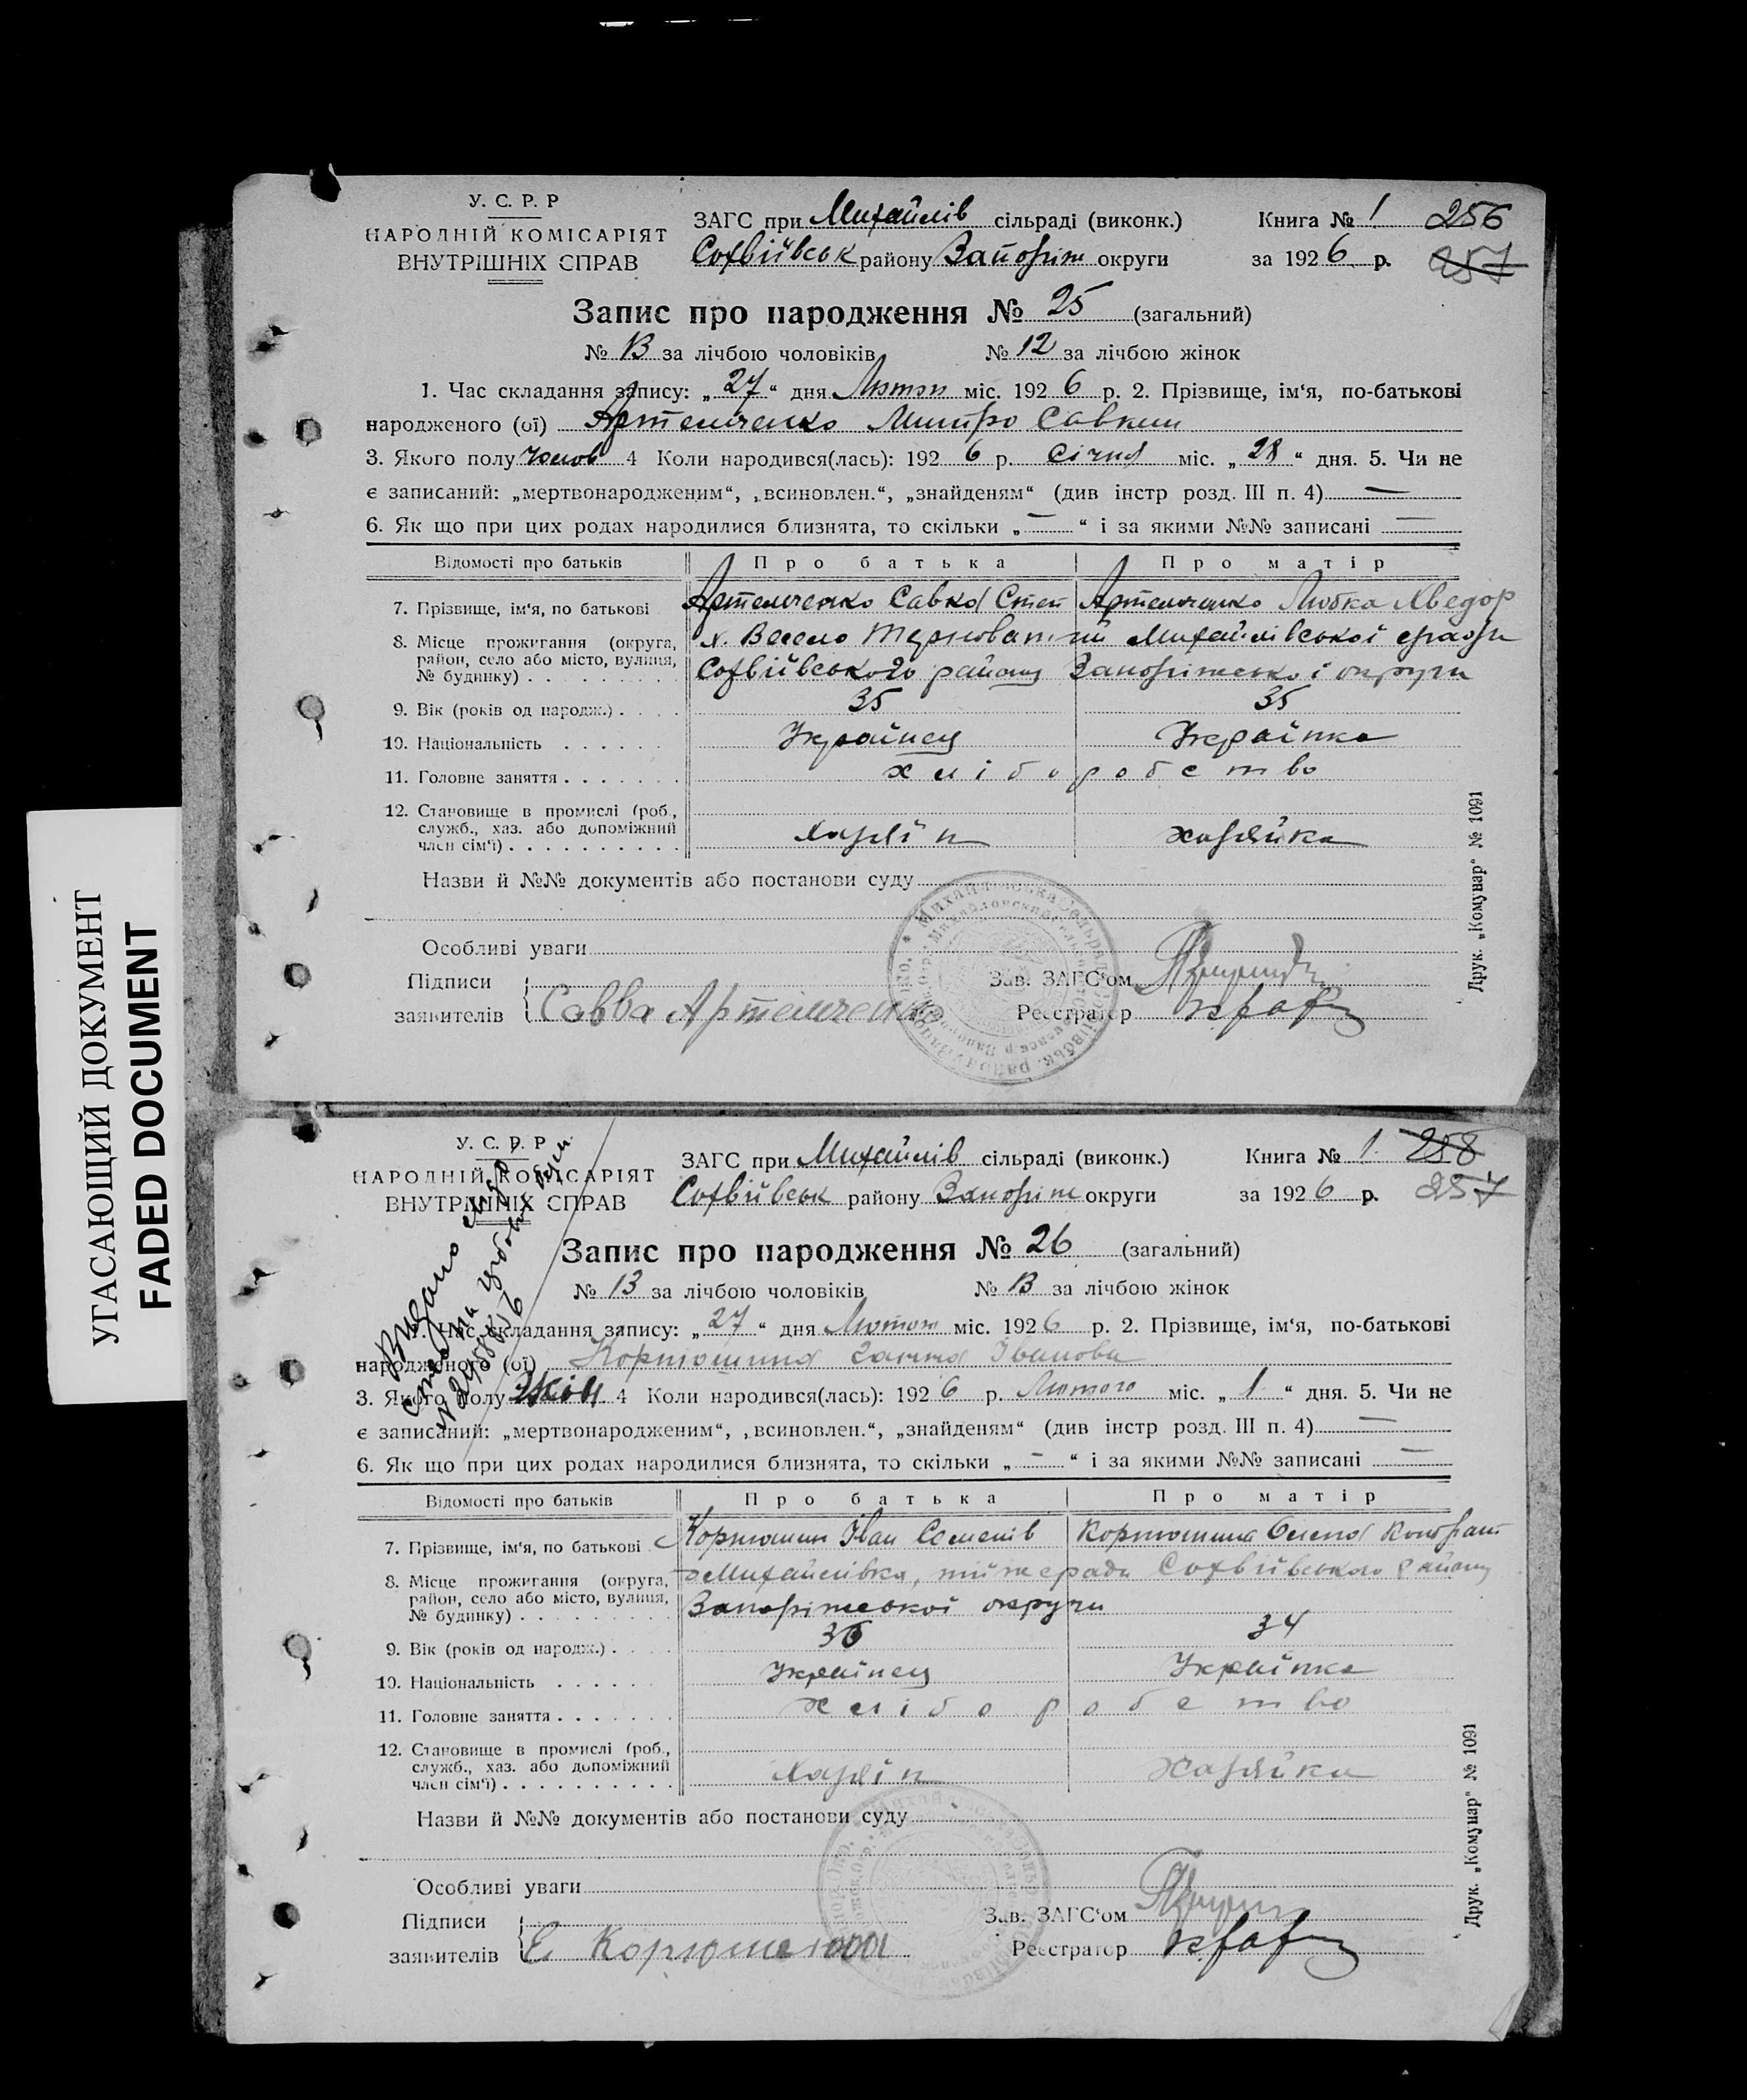 УГАСАЮЩИЙ ДОКУМЕНТ
FADED DOCUMENT
У. С. Р. Р
НАРОДНІЙ КОМІСАРІЯТ
ВНУТРІШНІХ СПРАВ
ЗАГС при Михайлів сільраді (виконк.) Книга № 1 256
Софвіївськ району Запоріж округи за 1926 р. 257
Запис про народження № 25 (загальний)
№ 13 за лічбою чоловіків № 12 за лічбою жінок
1. Час складання запису: „27“ дня Лютого міс. 1926 р. 2. Прізвище, ім‘я, по-батькові
народженого (ої) Артемченко Митро Савкин
3. Якого полу чолов 4 Коли народився(лась): 1926 р. Січня міс. „28“ дня. 5. Чи не
є записаний: „мертвонародженим“, „всиновлен.“, „знайденям“ (див інстр розд. III п. 4) —
6. Як що при цих родах народилися близнята, то скільки „—“ і за якими №№ записані —
Відомості про батьків Про батька Про матір
7. Прізвище, ім‘я, по батькові Артемченко Савка Степ Артемченко Любка Хведор
8. Місце прожигання (округа, район, село або місто, вулиця, № будинку) х. Весело Терноватий Михайлівської сради
Софвіївського району Запоріжської округи
9. Вік (років од народж.) 35 35
10. Національність Українец Українка
11. Головне заняття хліборобство
12. Становище в промислі (роб., служб., хаз. або допоміжний член сім‘ї) Хазяїн хазяйка
Назви й №№ документів або постанови суду
Особливі уваги
Підписи
заявителів Савва Артемченко
Зав. ЗАГС‘ом
Реєстратор
Друк. „Комунар“ № 1091
У. С. Р. Р
НАРОДНІЙ КОМІСАРІЯТ
ВНУТРІШНІХ СПРАВ
ЗАГС при Михайлів сільраді (виконк.) Книга № 1 258
Софвіївськ району Запоріж округи за 1926 р. 257
Запис про народження № 26 (загальний)
№ 13 за лічбою чоловіків № 13 за лічбою жінок
Видано
1. Час складання запису: „27“ дня Лютого міс. 1926 р. 2. Прізвище, ім‘я, по-батькові
народженого (ої) Корнюшина Ганна Іванова
3. Якого полу Жін 4 Коли народився(лась): 1926 р. Лютого міс. „1“ дня. 5. Чи не
є записаний: „мертвонародженим“, „всиновлен.“, „знайденям“ (див інстр розд. III п. 4) —
6. Як що при цих родах народилися близнята, то скільки „—“ і за якими №№ записані —
Відомості про батьків Про батька Про матір
7. Прізвище, ім‘я, по батькові Корнюшин Іван Семенів Корнюшина Олена Кондрат
8. Місце прожигання (округа, район, село або місто, вулиця, № будинку) Михайлівка, тійже сради Софвіївського району
Запоріжської округи
9. Вік (років од народж.) 36 34
10. Національність Українец Українка
11. Головне заняття хліборобство
12. Становище в промислі (роб., служб., хаз. або допоміжний член сім‘ї) Хазяїн Хазяйка
Назви й №№ документів або постанови суду
Особливі уваги
Підписи
заявителів Е.
Зав. ЗАГС‘ом
Реєстратор
Друк. „Комунар“ № 1091